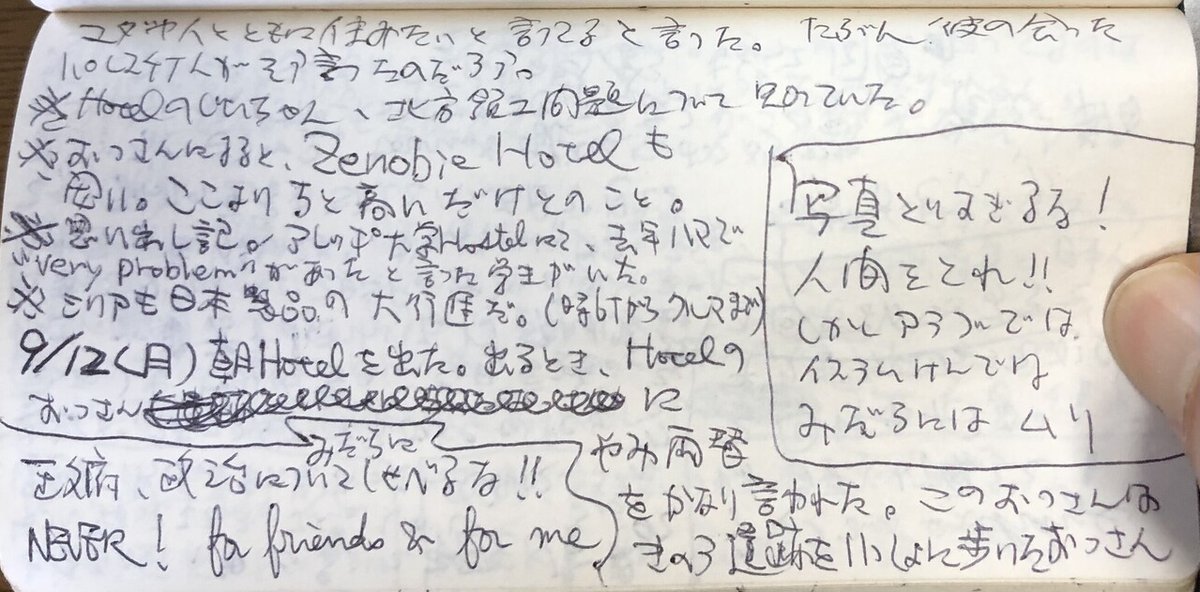 ユダヤ人とともに住みたいと言ってると言った。たぶん彼の会った
パレスチナ人がそう言ったのだろう。
※Hotelのじいちゃん、北方領土問題について知っていた。
※おっさんによると、Zenobie Hotelも
思い。ここより ちと高いだけとのこと。
※思い出し記。アレッポ大学Hostelにて、去年パスで
"very problem"があったと言った学生がいた。
※シリアも日本製品の大行進だ。(時計からクルマまで)
9/12(月)朝Hotelを出た。出るとき、Hotelの
おっさん に
やみ両替
をかなり言われた。このおっさんは
きのう遺跡をいっしょに歩いたおっさん
みだらに
政府、政治についてしゃべるな!!
NEVER! for friends & for me.
写真とりすぎるな!
人間をとれ!!
しかしアラブでは
イスラムけんでは
みだらには ムリ